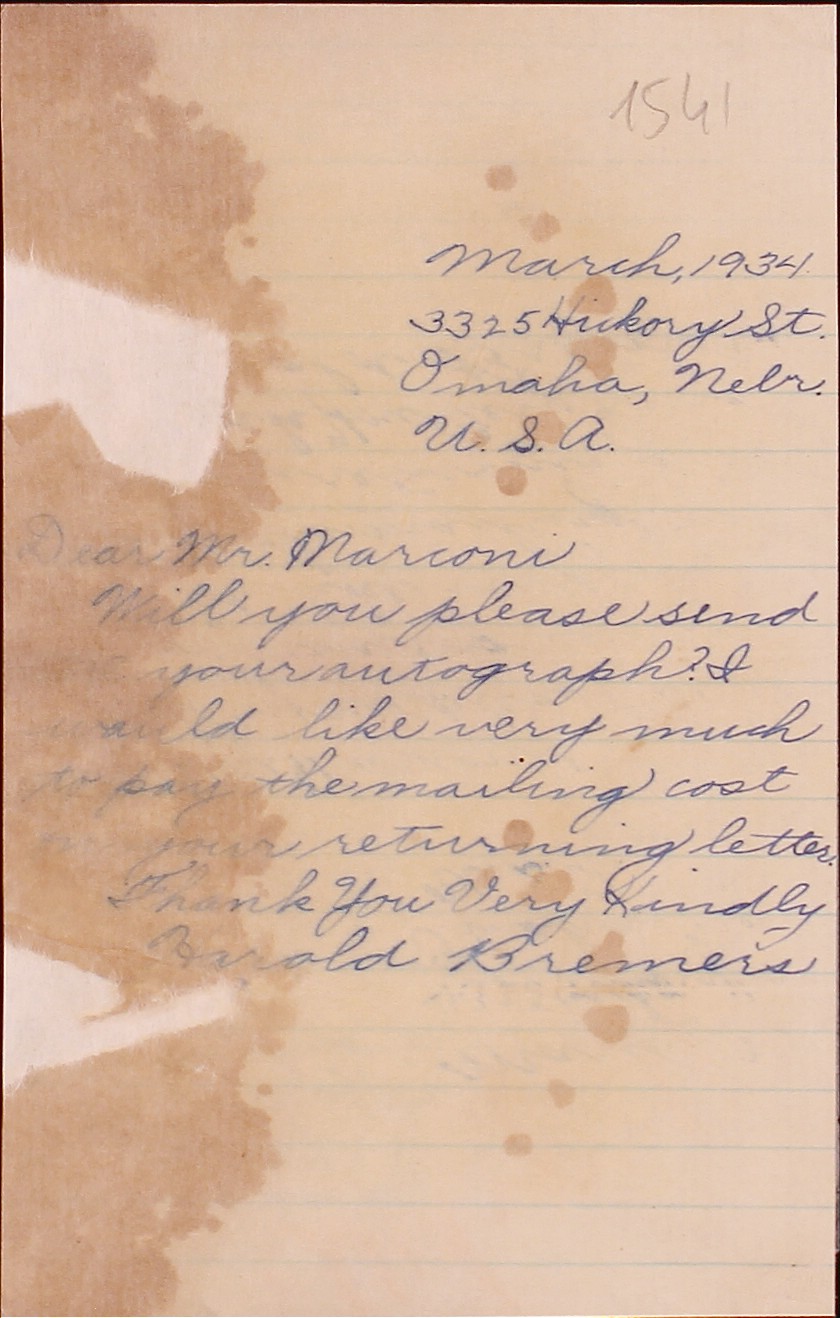 1541
March, 1934
3325 Hickory St.
Omaha, Nebr.
U. S. A.
Dear Mr. Marconi
Will you please send
your autograph? I
would like very much
to pay the mailing cost
your returning letter.
Thank You Very Kindly
Harold Bremers